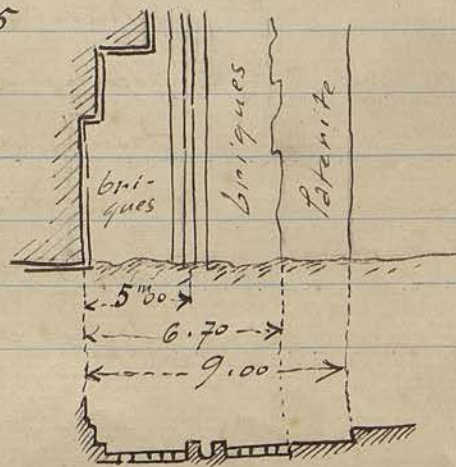 5
bri-
ques
briques
laterite
5m00
6.70
9.00